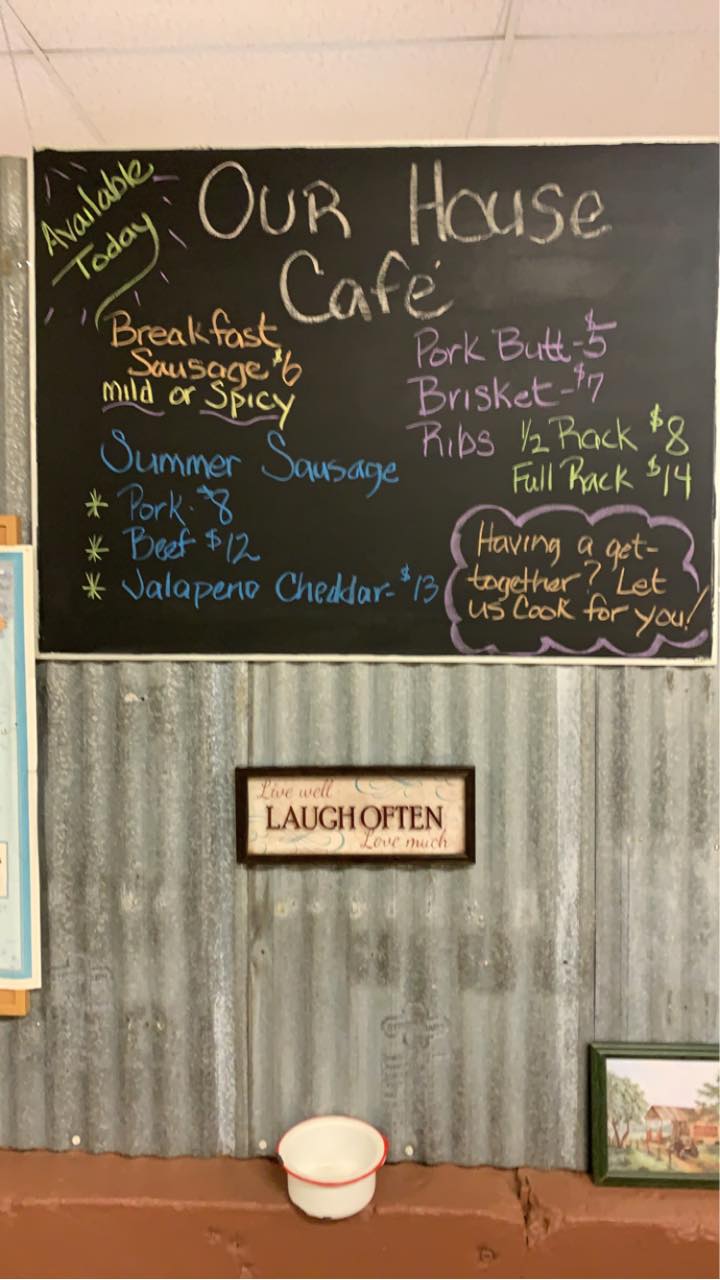 Available
Today
OUR House
Café
Breakfast
Sausage $6
mild or Spicy
Summer Sausage
* Pork - $8
* Beef $12
* Jalapeno Cheddar - $13
Pork Butt - $5
Brisket - $7
Ribs 1/2 Rack $8
Full Rack $14
Having a get-
together? Let
us Cook for you!
Live well
LAUGH OFTEN
Love much